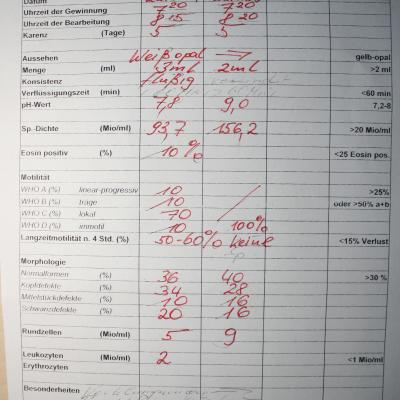 Datum
Uhrzeit der Gewinnung 7 20 7 20
Uhrzeit der Bearbeitung 8 15 8 20
Karenz (Tage) 5 5
Aussehen Weißopal → gelb-opal
Menge (ml) 3ml 2ml >2 ml
Konsistenz flüßig
Verflüssigungszeit (min) <60 min
pH-Wert 7,8 9,0 7,2-8
Sp.-Dichte (Mio/ml) 93,7 156,2 >20 Mio/ml
Eosin positiv (%) 10 % <25 Eosin pos.
Motilität
WHO A (%) linear-progressiv 10 >25%
WHO B (%) träge 10 oder >50% a+b
WHO C (%) lokal 70
WHO D (%) immotil 10 100%
Langzeitmotilität n. 4 Std. (%) 50-60% keine <15% Verlust
Morphologie
Normalformen (%) 36 40 >30 %
Kopfdefekte (%) 34 28
Mittelstückdefekte (%) 10 16
Schwanzdefekte (%) 20 16
Rundzellen (Mio/ml) 5 9
Leukozyten (Mio/ml) 2 <1 Mio/ml
Erythrozyten
Besonderheiten